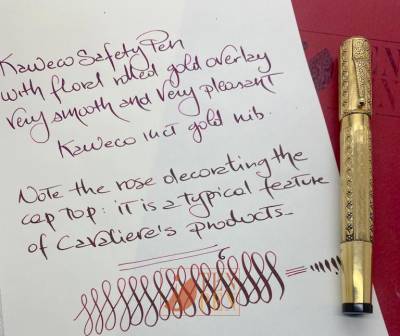 Kaweco Safety Pen
with floral rolled gold overlay
Very smooth and very pleasant
Kaweco 14ct gold nib.
Note the rose decorating the
cap top: it is a typical feature
of Cavaliere's products_